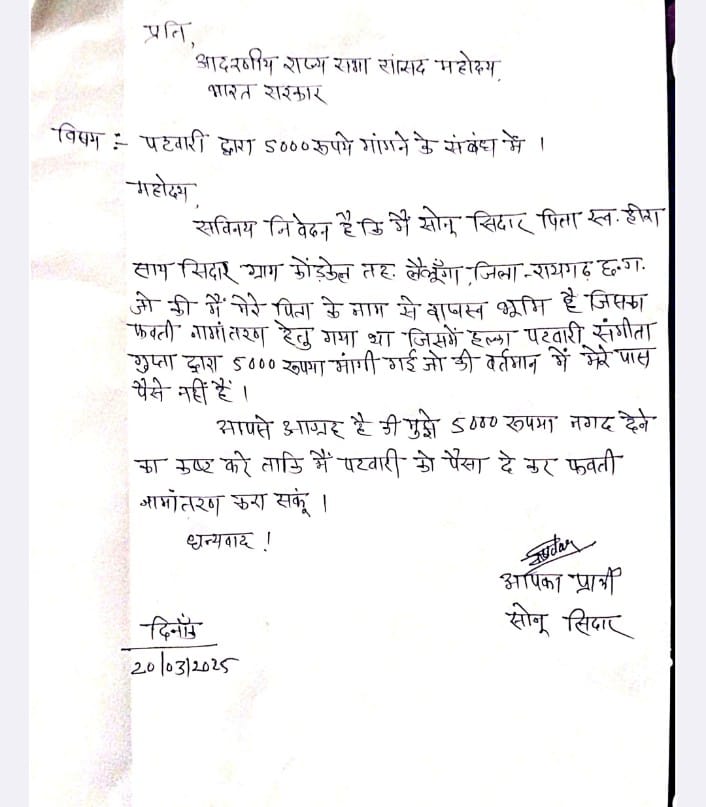 प्रति,
आदरणीय राज्य सभा सांसद महोदय,
भारत सरकार
विषय :- पटवारी द्वारा 5000 रूपये मांगने के संबंध में ।
महोदय,
सविनय निवेदन है कि मैं सोनू सिदार पिता स्व. हीरा
साय सिदार ग्राम कोंड़केल तह. लैलूँगा, जिला-रायगढ़ छ.ग.
जो की मैं मेरे पिता के नाम से राजस्व भूमि है जिसका
फवती नामांतरण हेतु गया था जिसमें हल्का पटवारी संगीता
गुप्ता द्वारा 5000 रूपया मांगी गई जो की वर्तमान में मेरे पास
पैसे नहीं हैं ।
आपसे आग्रह है की मुझे 5000 रूपया नगद देने
का कष्ट करे ताकि मैं पटवारी को पैसा दे कर फवती
नामांतरण करा सकूं ।
धन्यवाद !
आपका प्रार्थी
सोनू सिदार
दिनाँक
20/03/2025